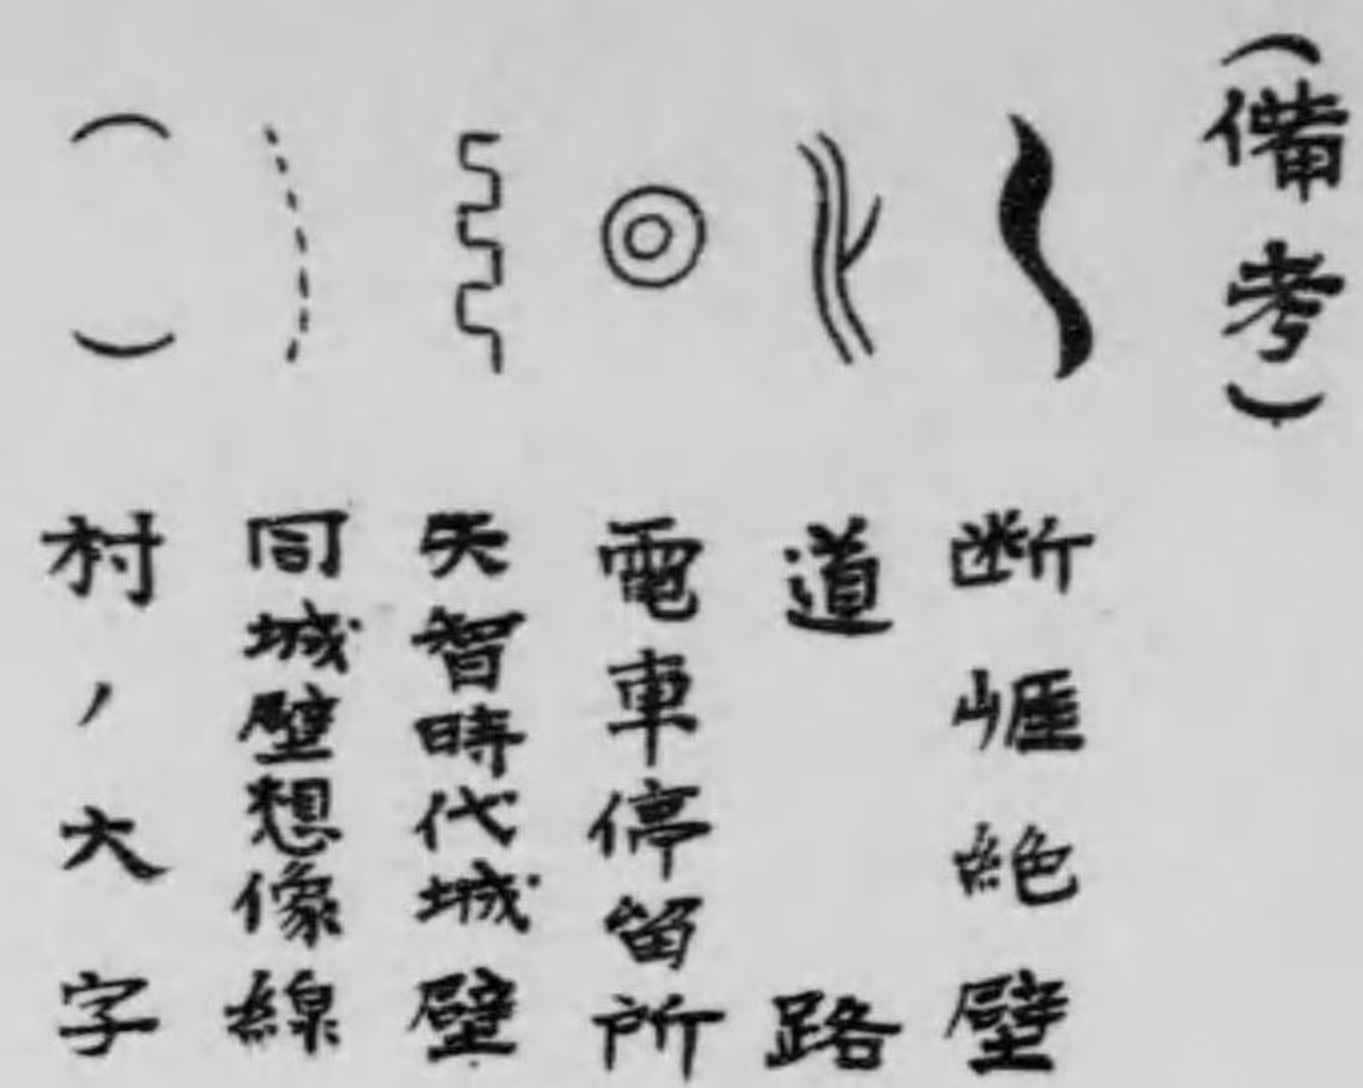 （備考）
断崖絶壁
道路
電車停留所
天智時代城壁
同城壁想像線
村ノ大字